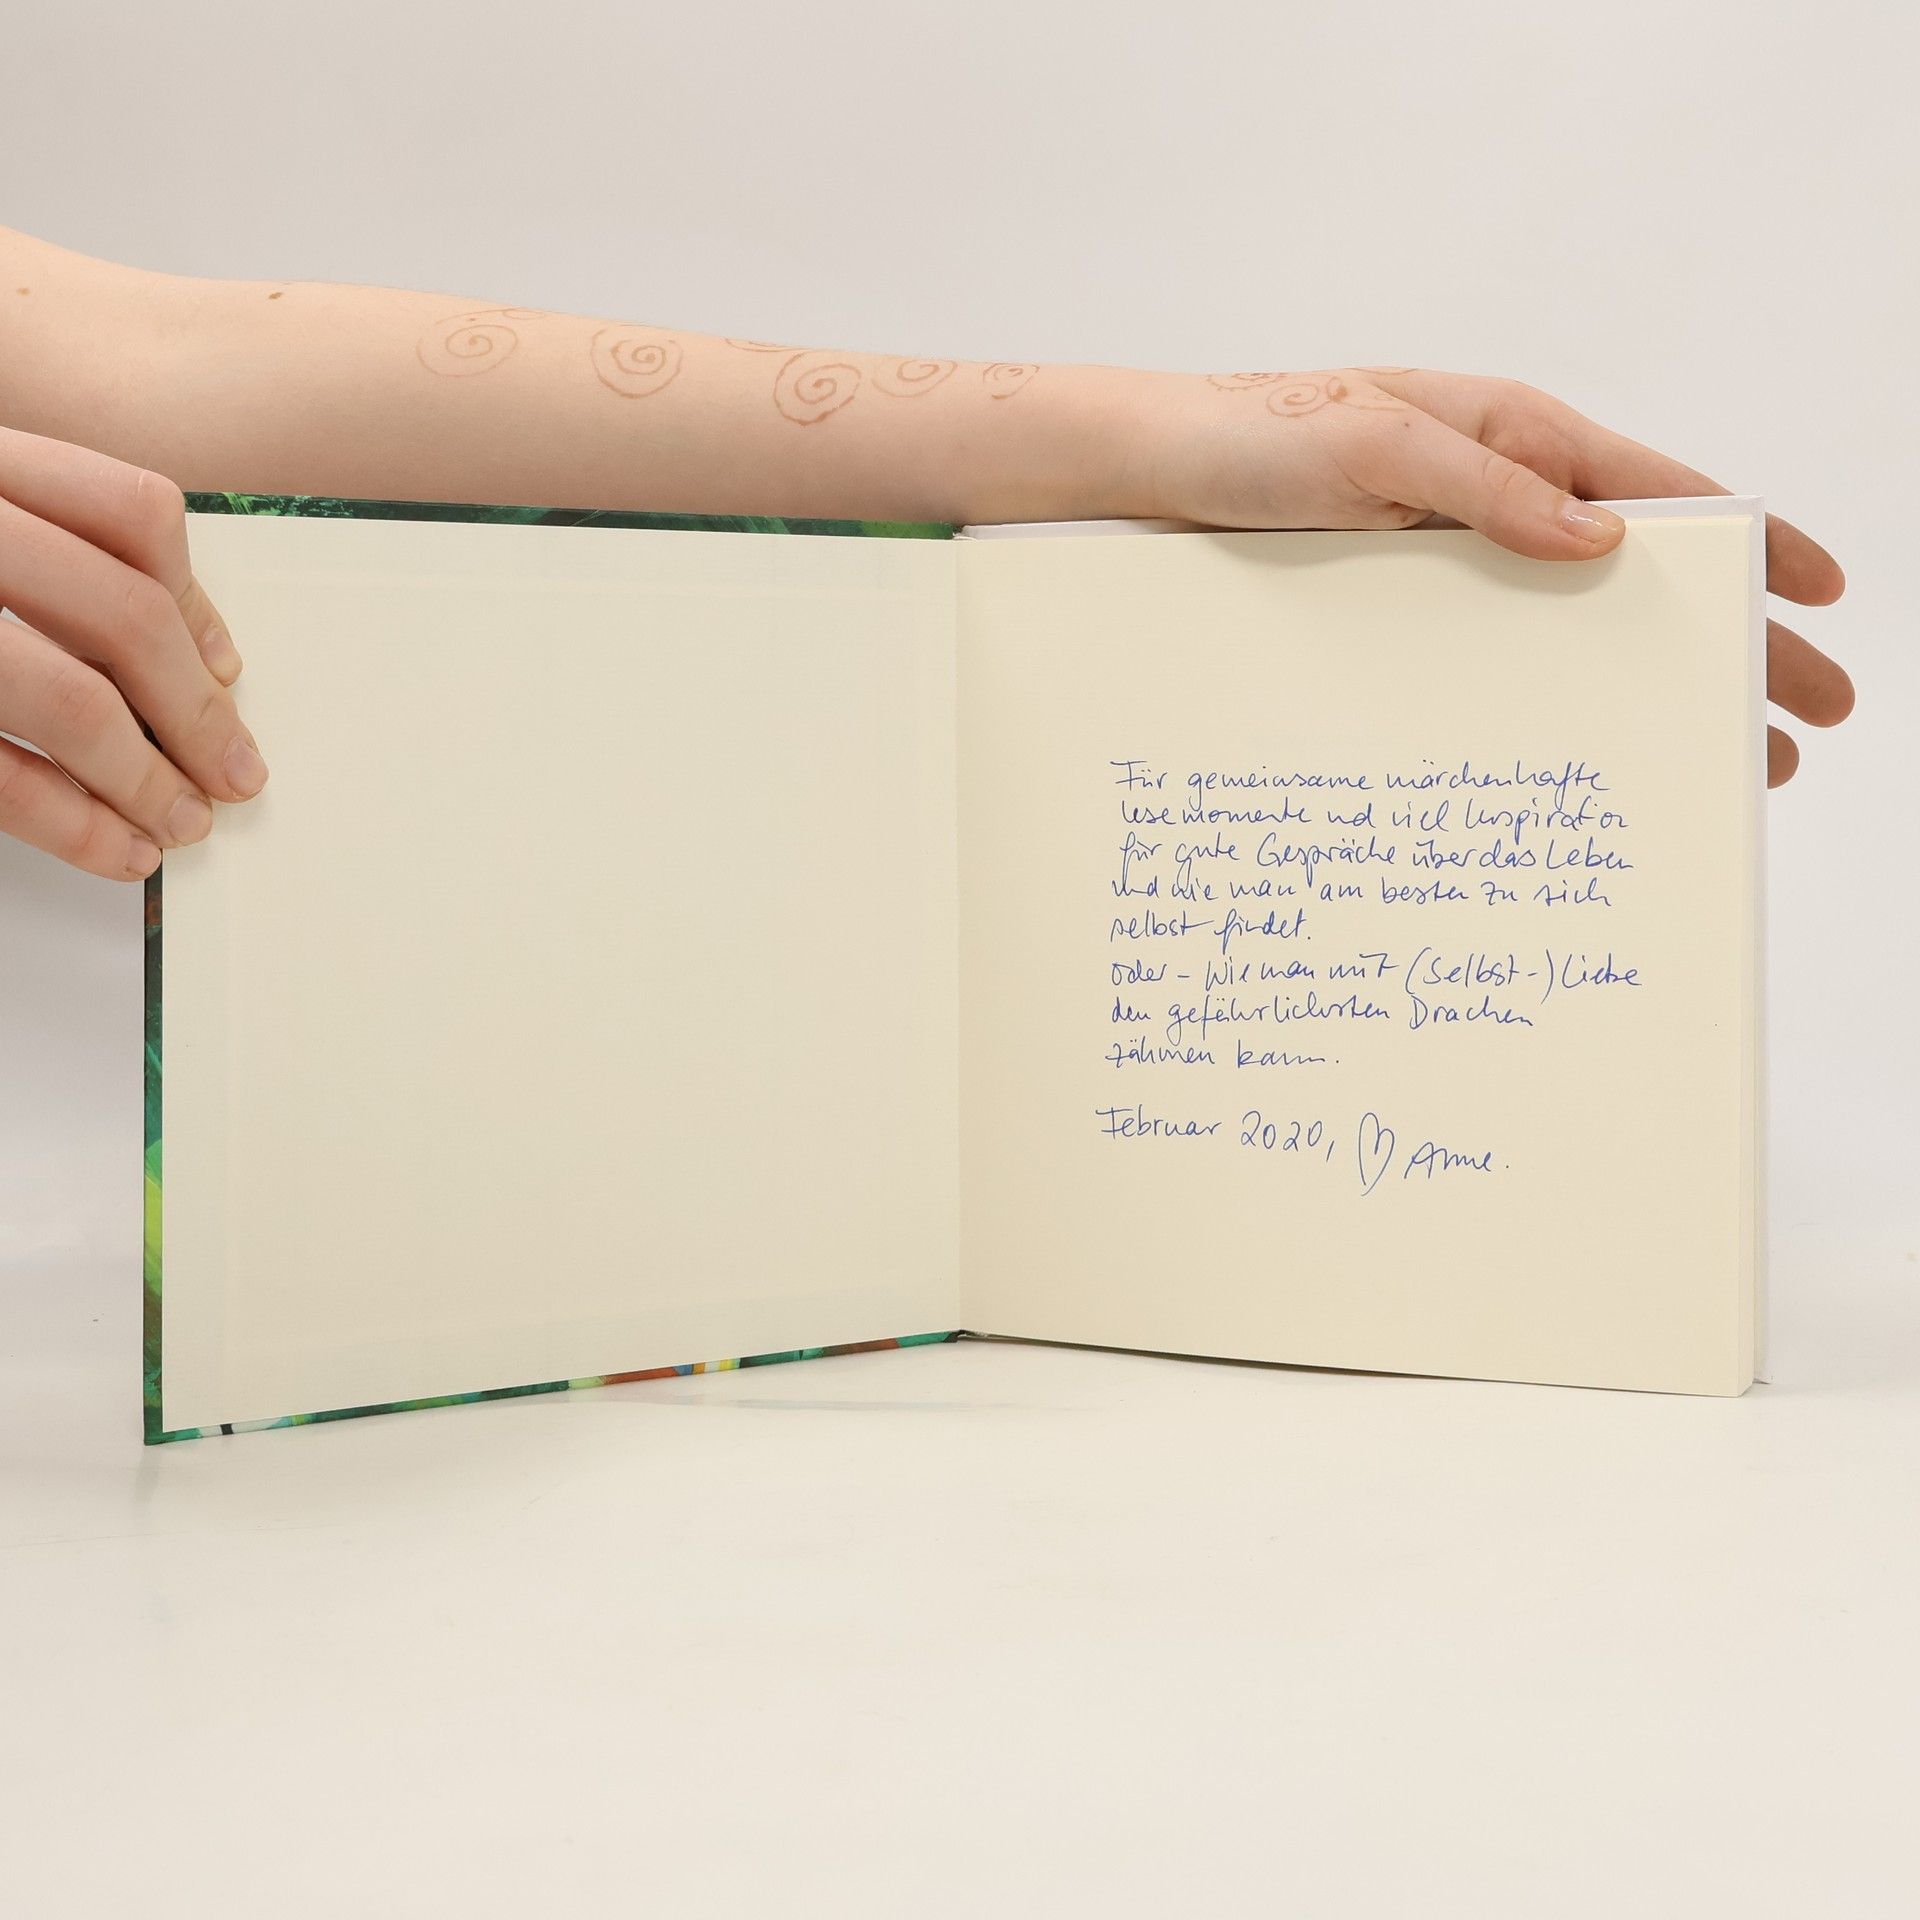 Für gemeinsame märchenhafte
Lesemomente und viel Inspiration
für gute Gespräche über das Leben
und wie man am besten zu sich
selbst findet.
oder - wie man mit (Selbst-) Liebe
den gefährlichsten Drachen
zähmen kann.
Februar 2020, ♡ Anne.